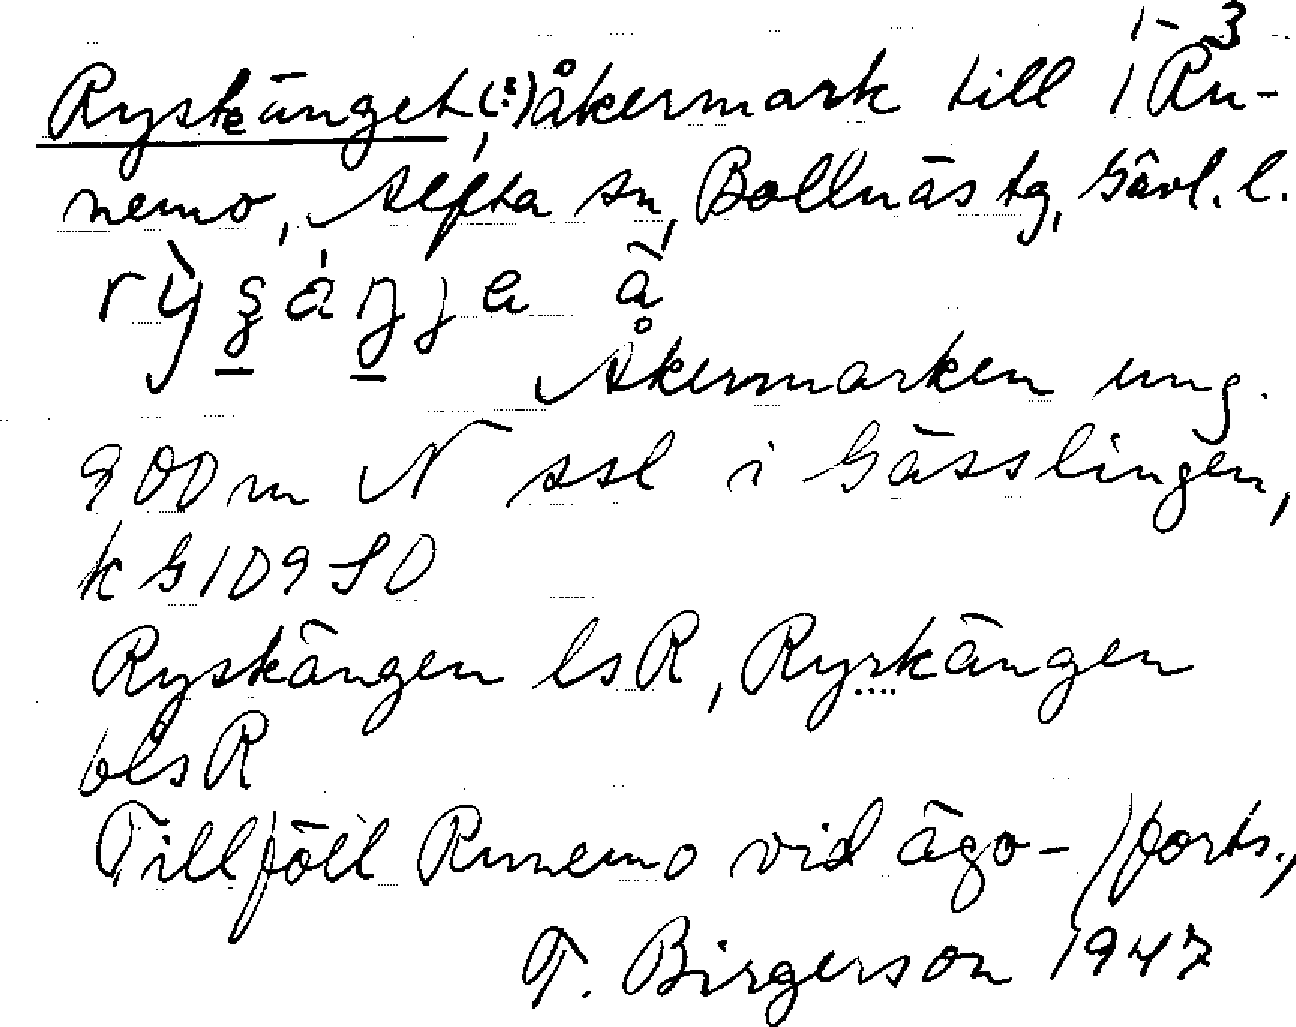 1-3
Ryskänget, (:) åkermark till 1 Ru-
nemo, Alfta sn, Bollnäs tg, Gävl. l.
Åkermarken ung.
900 m N ssl i Gässlingen,
k G 109 SO
Ryskängen ls R, Ryrkängen
bls R
Tillföll Runemo vid ägo- /forts./
T. Birgerson 1947